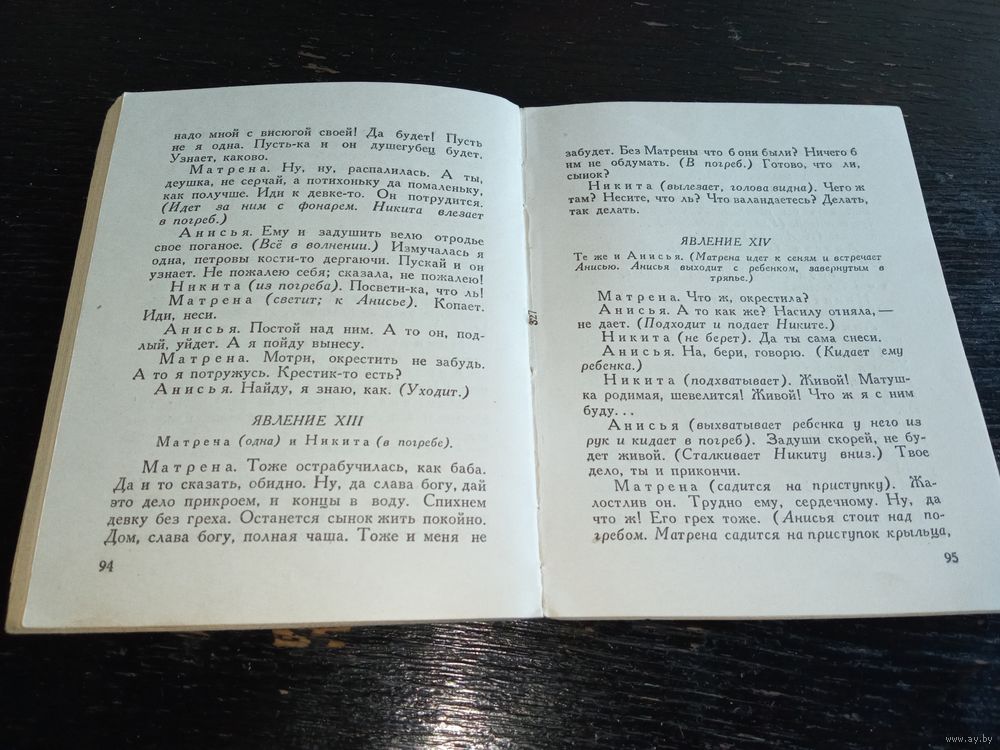 надо мной с висюгой своей! Да будет! Пусть
не я одна. Пусть-ка и он душегубец будет.
Узнает, каково.
Матрена. Ну, ну, распалилась. А ты,
деушка, не серчай, а потихоньку да помаленьку,
как получше. Иди к девке-то. Он потрудится.
(Идет за ним с фонарем. Никита влезает
в погреб.)
Анисья. Ему и задушить велю отродье
свое поганое. (Всё в волнении.) Измучалась я
одна, петровы кости-то дергаючи. Пускай и он
узнает. Не пожалею себя; сказала, не пожалею!
Никита (из погреба). Посвети-ка, что ль!
Матрена (светит; к Анисье). Копает.
Иди, неси.
Анисья. Постой над ним. А то он, под-
лый, уйдет. А я пойду вынесу.
Матрена. Мотри, окрестить не забудь.
А то я потружусь. Крестик-то есть?
Анисья. Найду, я знаю, как. (Уходит.)
ЯВЛЕНИЕ XIII
Матрена (одна) и Никита (в погребе).
Матрена. Тоже острабучилась, как баба.
Да и то сказать, обидно. Ну, да слава богу, дай
это дело прикроем, и концы в воду. Спихнем
девку без греха. Останется сынок жить покойно.
Дом, слава богу, полная чаша. Тоже и меня не
94
327
забудет. Без Матрены что б они были? Ничего б
им не обдумать. (В погреб.) Готово, что ли,
сынок?
Никита (вылезает, голова видна). Чего ж
там? Несите, что ль? Что валандаетесь? Делать,
так делать.
ЯВЛЕНИЕ XIV
Те же и Анисья. (Матрена идет к сеням и встречает
Анисью. Анисья выходит с ребенком, завернутым в
тряпье.)
Матрена. Что ж, окрестила?
Анисья. А то как же? Насилу отняла,—
не дает. (Подходит и подает Никите.)
Никита (не берет). Да ты сама снеси.
Анисья. На, бери, говорю. (Кидает ему
ребенка.)
Никита (подхватывает). Живой! Матуш-
ка родимая, шевелится! Живой! Что ж я с ним
буду...
Анисья (выхватывает ребенка у него из
рук и кидает в погреб). Задуши скорей, не бу-
дет живой. (Сталкивает Никиту вниз.) Твое
дело, ты и прикончи.
Матрена (садится на приступку). Жа-
лостлив он. Трудно ему, сердечному. Ну, да
что ж! Его грех тоже. (Анисья стоит над по-
гребом. Матрена садится на приступок крыльца,
95
www.ay.by